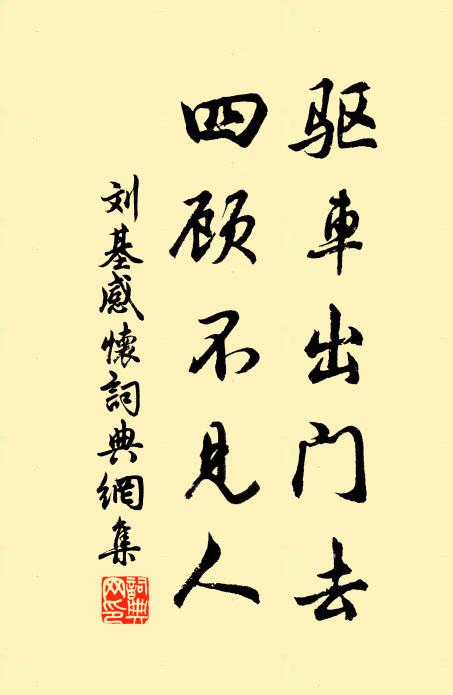 驱車出门去
四顾不見人
刘基感懷詞典網集
詞典网印